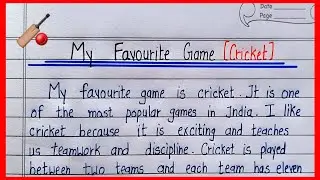 Date
Page
My Favourite Game [Cricket]
My favourite game is cricket. It is one
of the most popular games in India. I like
cricket because it is exciting and teaches
us teamwork and discipline. Cricket is played
between two teams and each team has eleven